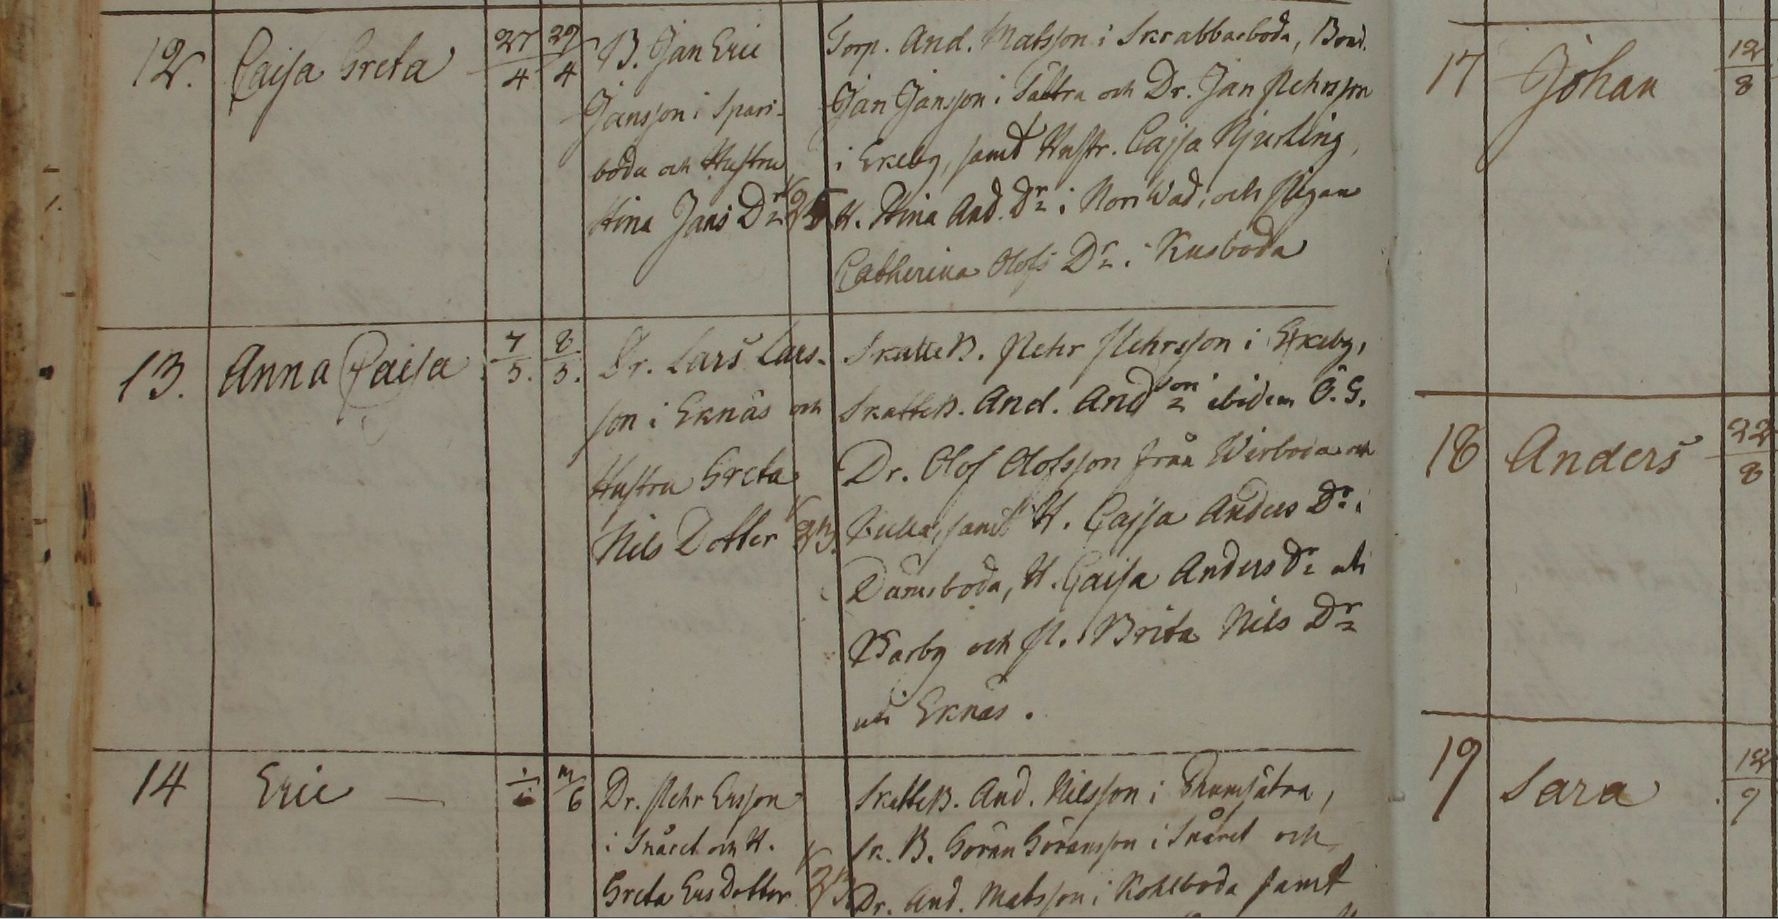 12. Caisa Greta 27/4 29/4 B. Jan Eric
Jansson i Spari-
boda och Hustru
Stina Jans Dr 25
Torp. And. Matsson i Skrabbaboda, Bond.
Jan Jansson i Sättra och Dr. Jan Pehrsson
i Ekeby, samt Hustr. Cajsa Hjerling,
H. Stina And. Dr i Norr Wad, och Pigan
Catherina Olofs Dr i Kusboda
13. Anna Caisa 7/5. 8/5. Dr. Lars Lars-
son i Eknäs och
Hustru Greta
Nils Dotter
SkatteB. Pehr Pehrsson i Ekeby,
SkatteB. And. Andson ibidem Ö. G.
Dr. Olof Olofsson från Wirboda och
samt H. Cajsa Anders Dr i
Damsboda, H. Caisa Anders Dr och
Warby och P. Brita Nils Dr
uti Eknäs.
14 Eric — 3/6 Dr. Pehr Ersson
i Snåret och H.
Greta Ers Dotter
SkatteB. And. Nilsson i
Sk. B. Göran Göransson i Snåret och
Dr. And. Matsson i Kohlboda samt
17 Johan 12/8
18 Anders 22/8
19 Sara 12/9